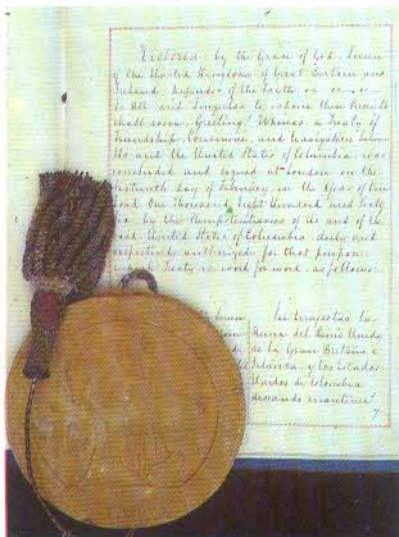 Victoria, by the Grace of God, Queen
of the United Kingdom of Great Britain and
Ireland, Defender of the Faith &c. &c. &c.
To All and Singular to whom these Presents
shall come, Greeting! Whereas a Treaty of
Friendship, Commerce, and Navigation between
Us and the United States of Columbia, was
concluded and signed at London on the
Sixteenth day of February, in the Year of Our
Lord One Thousand Eight Hundred and Sixty
Six by the Plenipotentiaries of Us and of the
said United States of Columbia, duly and
respectively authorized for that purpose
Treaty is, word for word, as follows:
Su Magestad la
Reina del Reino Unido
de la Gran Bretaña é
Irlanda y los Estados
Unidos de Colombia
deseando mantener